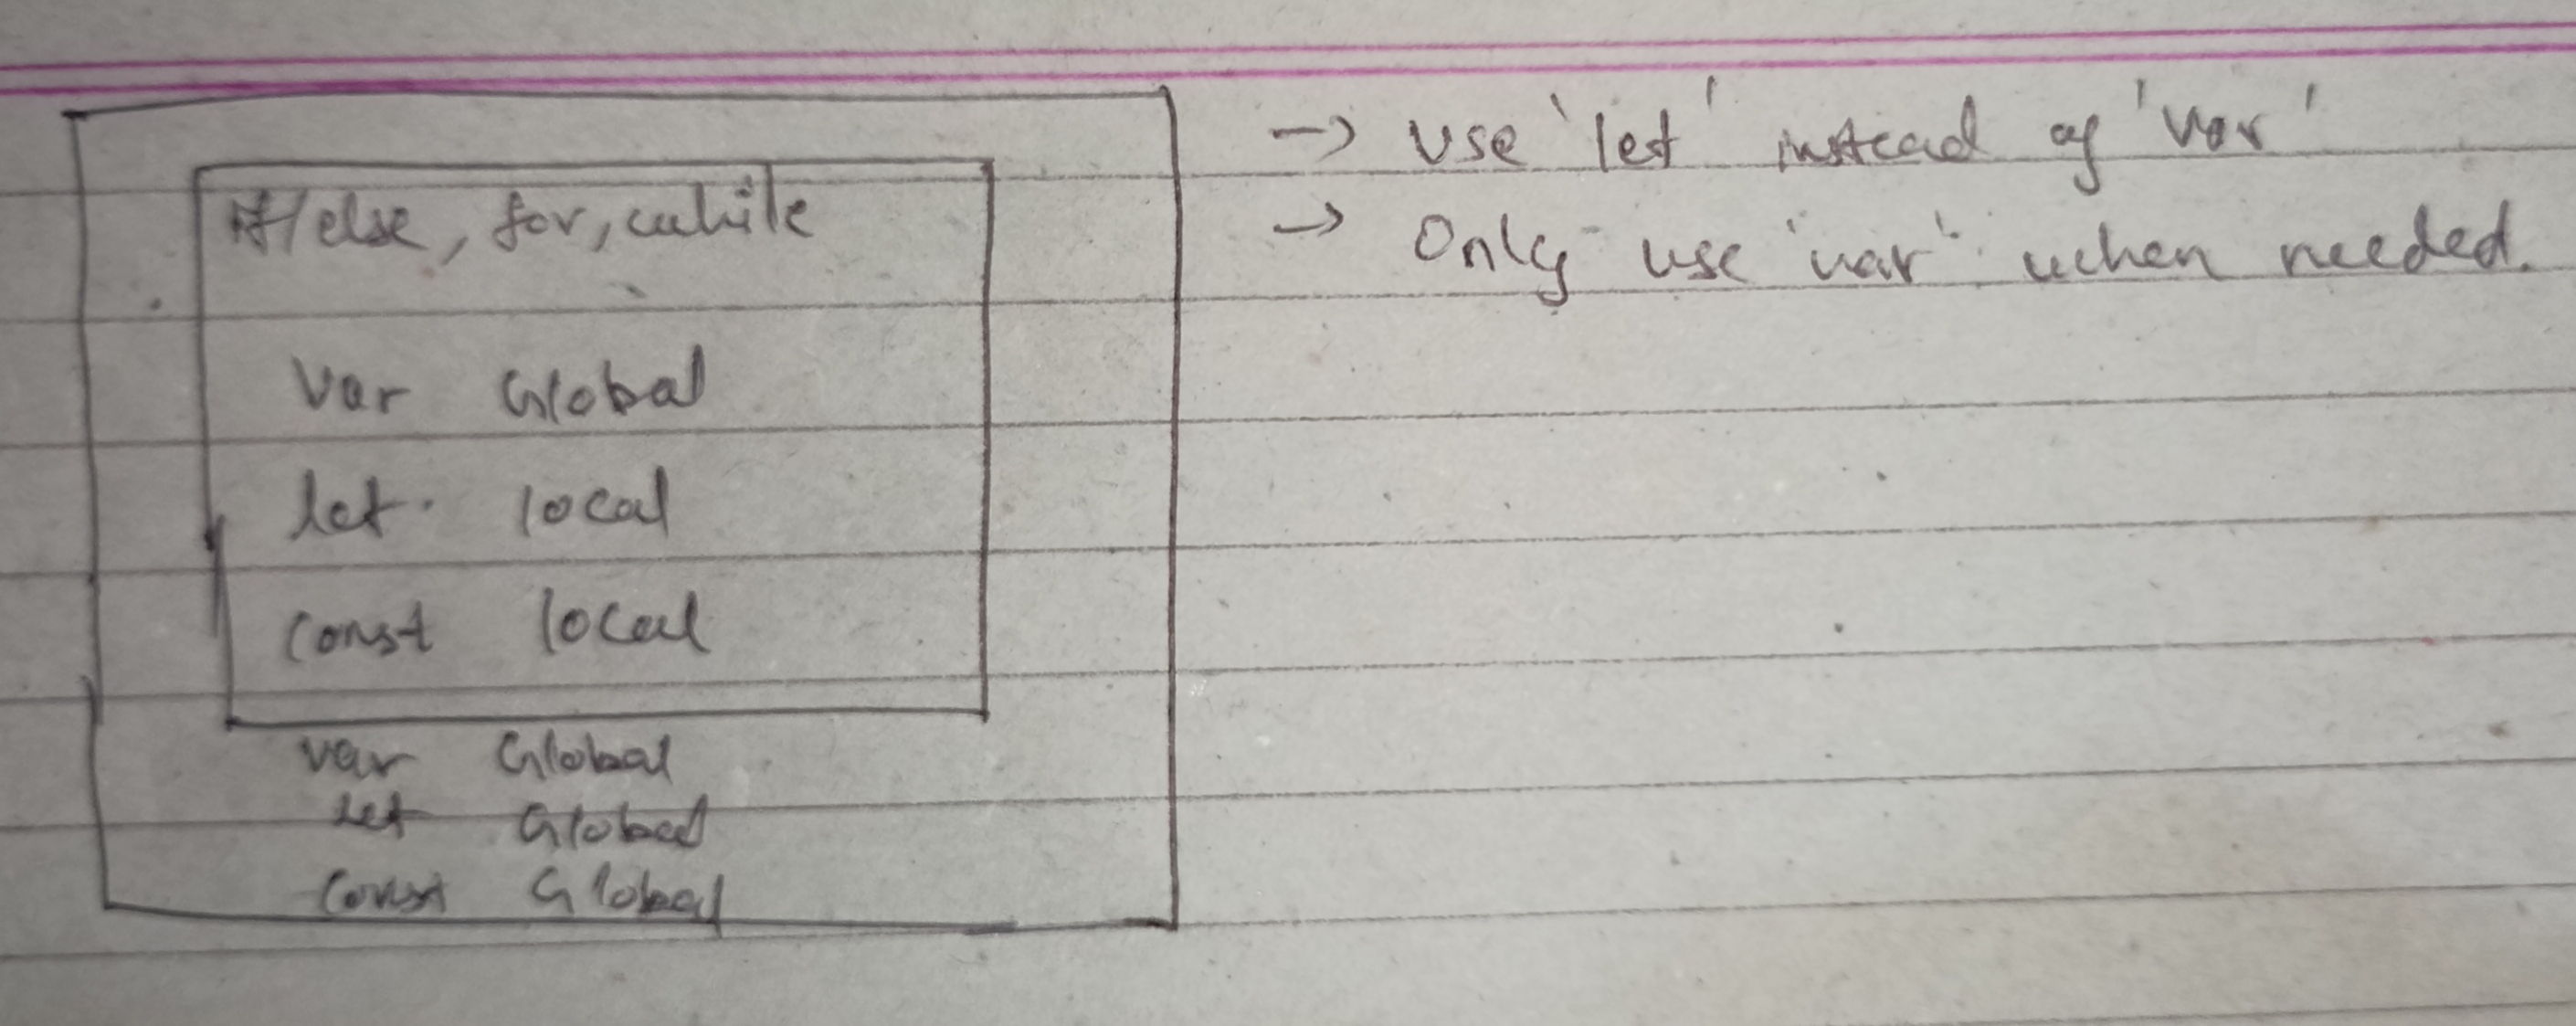 if/else, for, while
var Global
let local
const local
var Global
let Global
const Global
→ use 'let' instead of 'var'
→ Only use 'var' when needed.